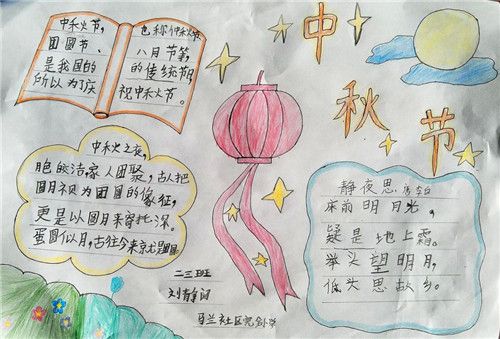 中秋节
中秋节,
团圆节、
是我国的
所以为了庆
也称仲秋节
八月节等,
的传统节
祝中秋节。
中秋之夜,
皎洁,家人团聚,古人把
圆月视为团圆的像征,
更是以圆月来寄托深。
蛋圆似月,古往今来
静夜思 李白
床前明月光,
疑是地上霜。
举头望明月,
低头思故乡。
二三班
刘静
马兰社区完全小学